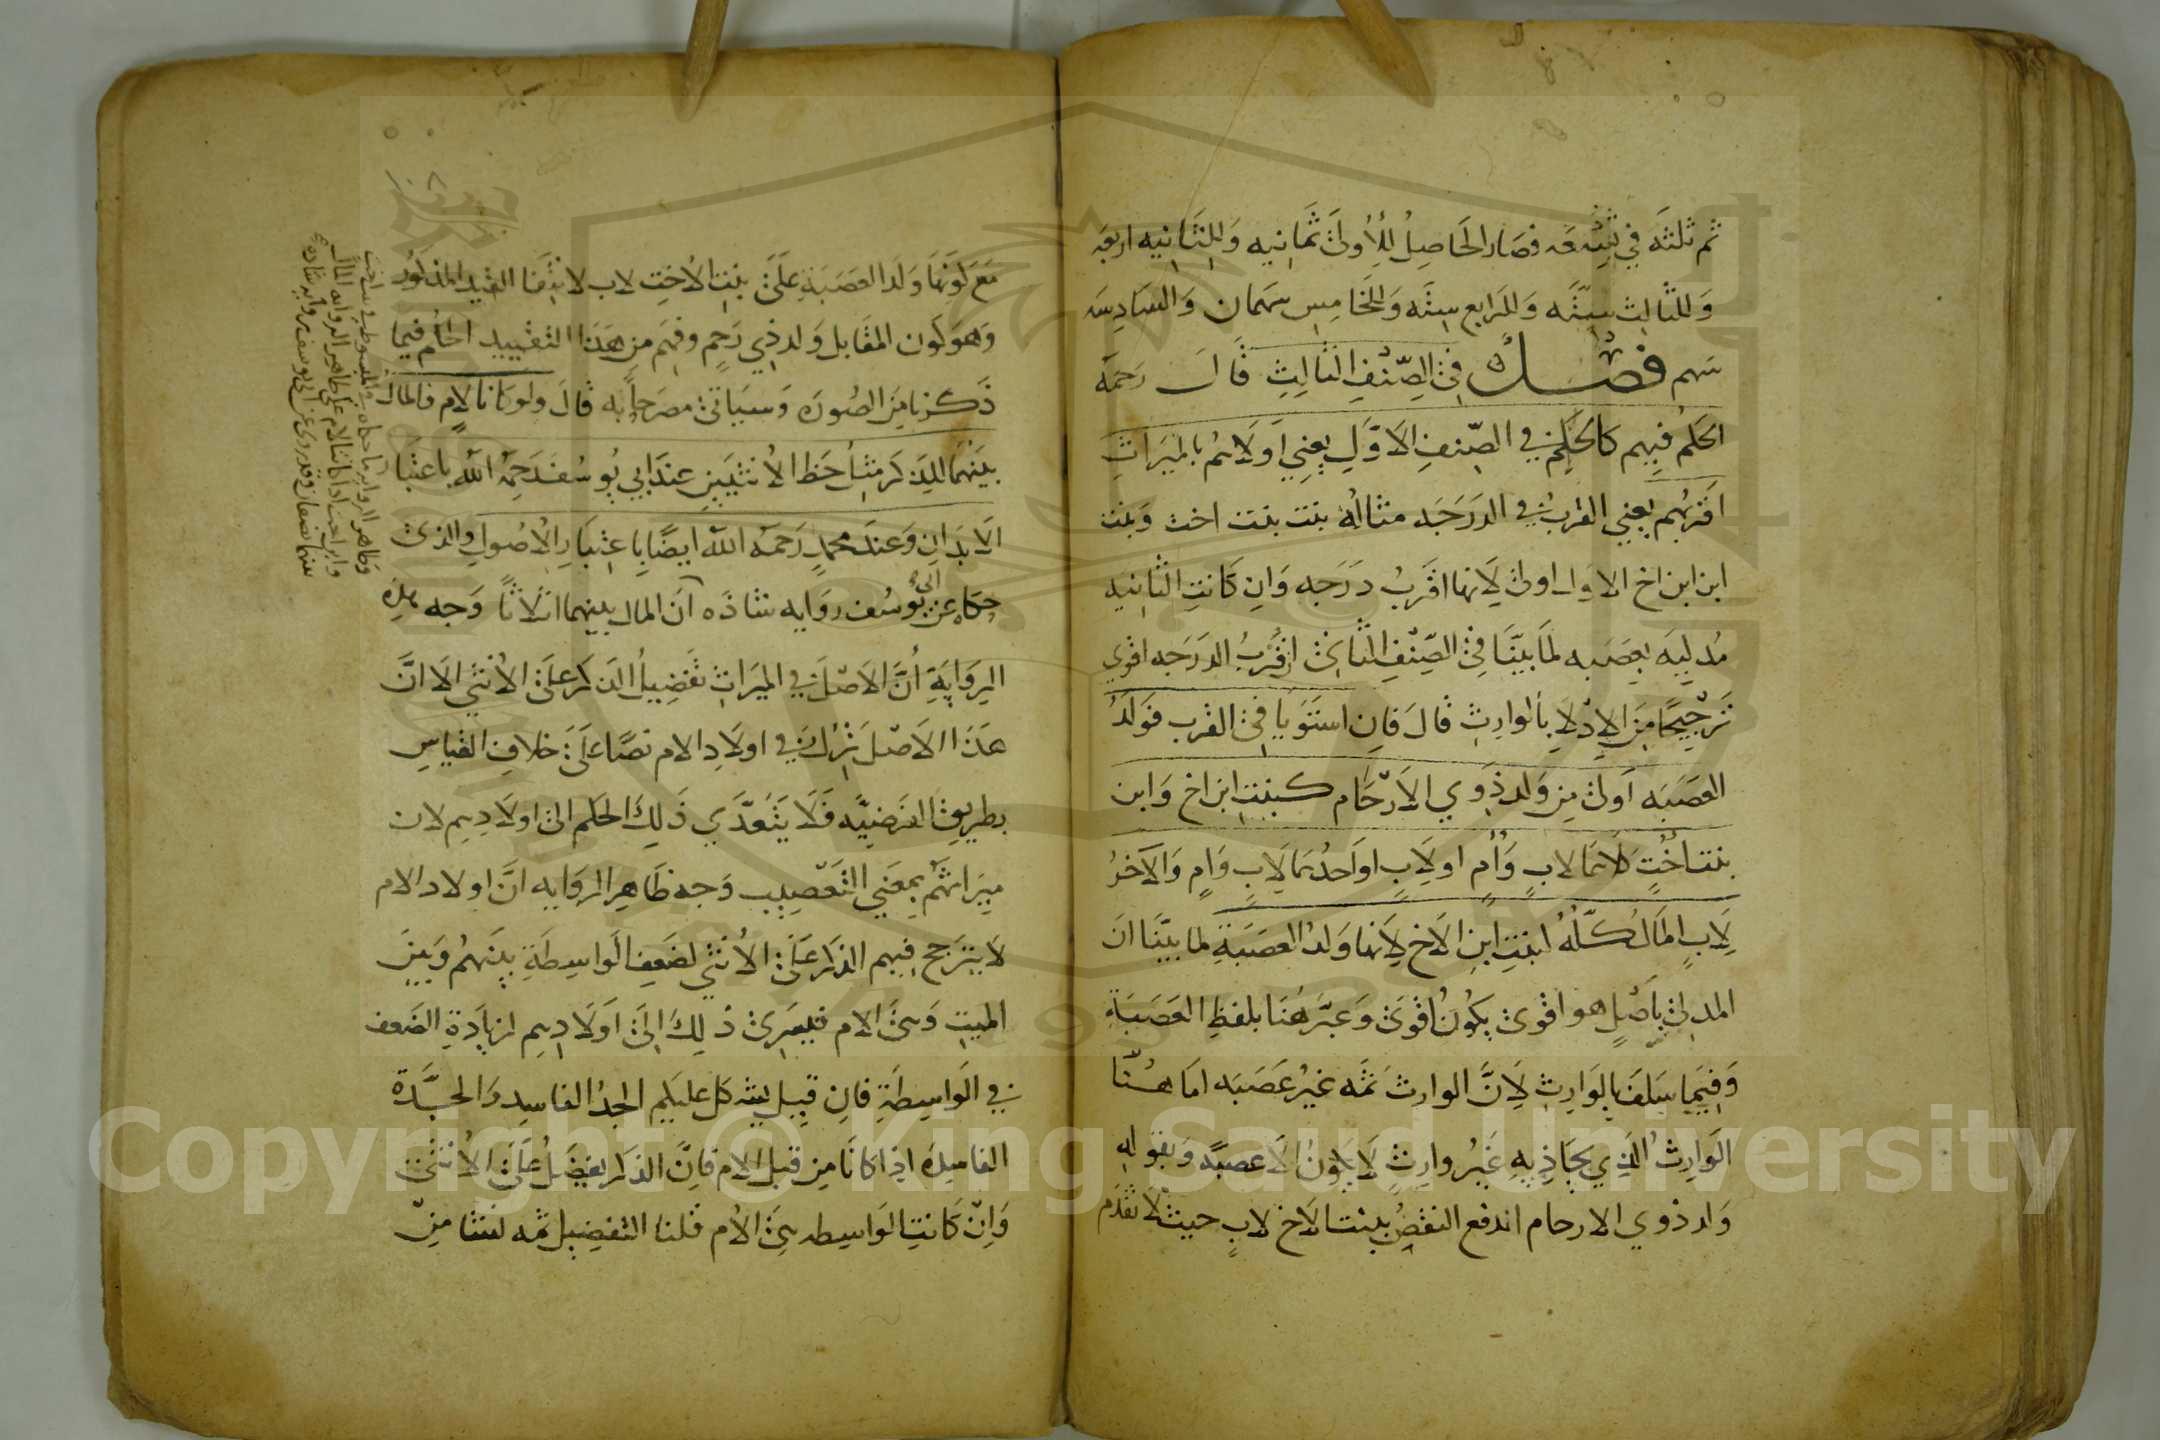 ثم ثلثه في تسعه فصار الحاصل للأولى ثمانيه وللثانيه اربعه
وللثالث ستّه وللرابع سته وللخامس سهمان والسادس
سهم فصل في الصّنف الثالث قال رحمه
الحكم فيهم كالحكم في الصّنف الاوّل يعني اولاهم بالميراث
اقربهم يعني القرب في الدرجه مثاله بنت بنت اخت وبنت
ابن ابن اخ الاول اولى لانها اقرب درجه وان كانت الثانيه
مدليه بعصبه لما بيّنّا في الصّنف الثاني ان قرب الدرجه اقوى
ترجيحا من الادلاء بالوارث قال فان استويا في القرب فولد
العصبه اولى من ولد ذوي الارحام كبنت ابن اخ وابن
بنت اخت كلاهما لاب وأم او لاب او احدهما لاب وام والآخر
لاب المال كلّه لبنت ابن الاخ لانها ولد العصبة لما بيّنّا ان
المدلى باصل هو اقوى يكون اقوى وعبّر هنا بلفظ العصبة
وفيما سلف بالوارث لانّ الوارث ثمه غير عصبه اما هنا
الوارث الذي يحاذيه غير وارث لا يكون الا عصبة وبقوله
ولد ذوي الارحام اندفع النقض ببنت الاخ لاب حيث لا تقدم
مع كونها ولد العصبة على بنت الاخت لاب لانتفا القيد المذكور
وهو كون المقابل ولد ذي رحم وفهم من هذا التقييد الحكم فيما
ذكرنا من الصوره وسياتي مصرحا به قال ولو كانا لام فالمال
بينهما للذكر مثل حظ الأنثيين عند ابي يوسف رحمه الله باعتبا
الابدان وعند محمد رحمه الله ايضا باعتبار الاصول والذي
حكاه عن ابي يوسف روايه شاذه ان المال بينهما اثلاثا وجه هذه
الرواية أنّ الاصل في الميراث تفضيل الذكر على الأنثى الا انّ
هذا الاصل ترك في اولاد الام نصّا على خلاف القياس
بطريق الفرضيّه فلا يتعدّي ذلك الحكم الى اولادهم لان
ميراثهم بمعنى التعصيب وجه ظاهر الروايه انّ اولاد الام
لا يترجح فيهم الذكر على الأنثى لضعف الواسطة بينهم وبين
الميت وهي الام فيسري ذلك الى اولادهم لزيادة الضعف
في الواسطة فان قيل يشكل عليكم الجد الفاسد والجدّة
الفاسده اذا كانا من قبل الام فانّ الذكر يفضل على الأنثى
وان كانت الواسطه هي الأم قلنا التفضيل ثمه لنشا من
وظاهر الروايه ما حكاه في المبسوط
بينهما نصفان وقد روي عن ابي يوسف روايه شاذه